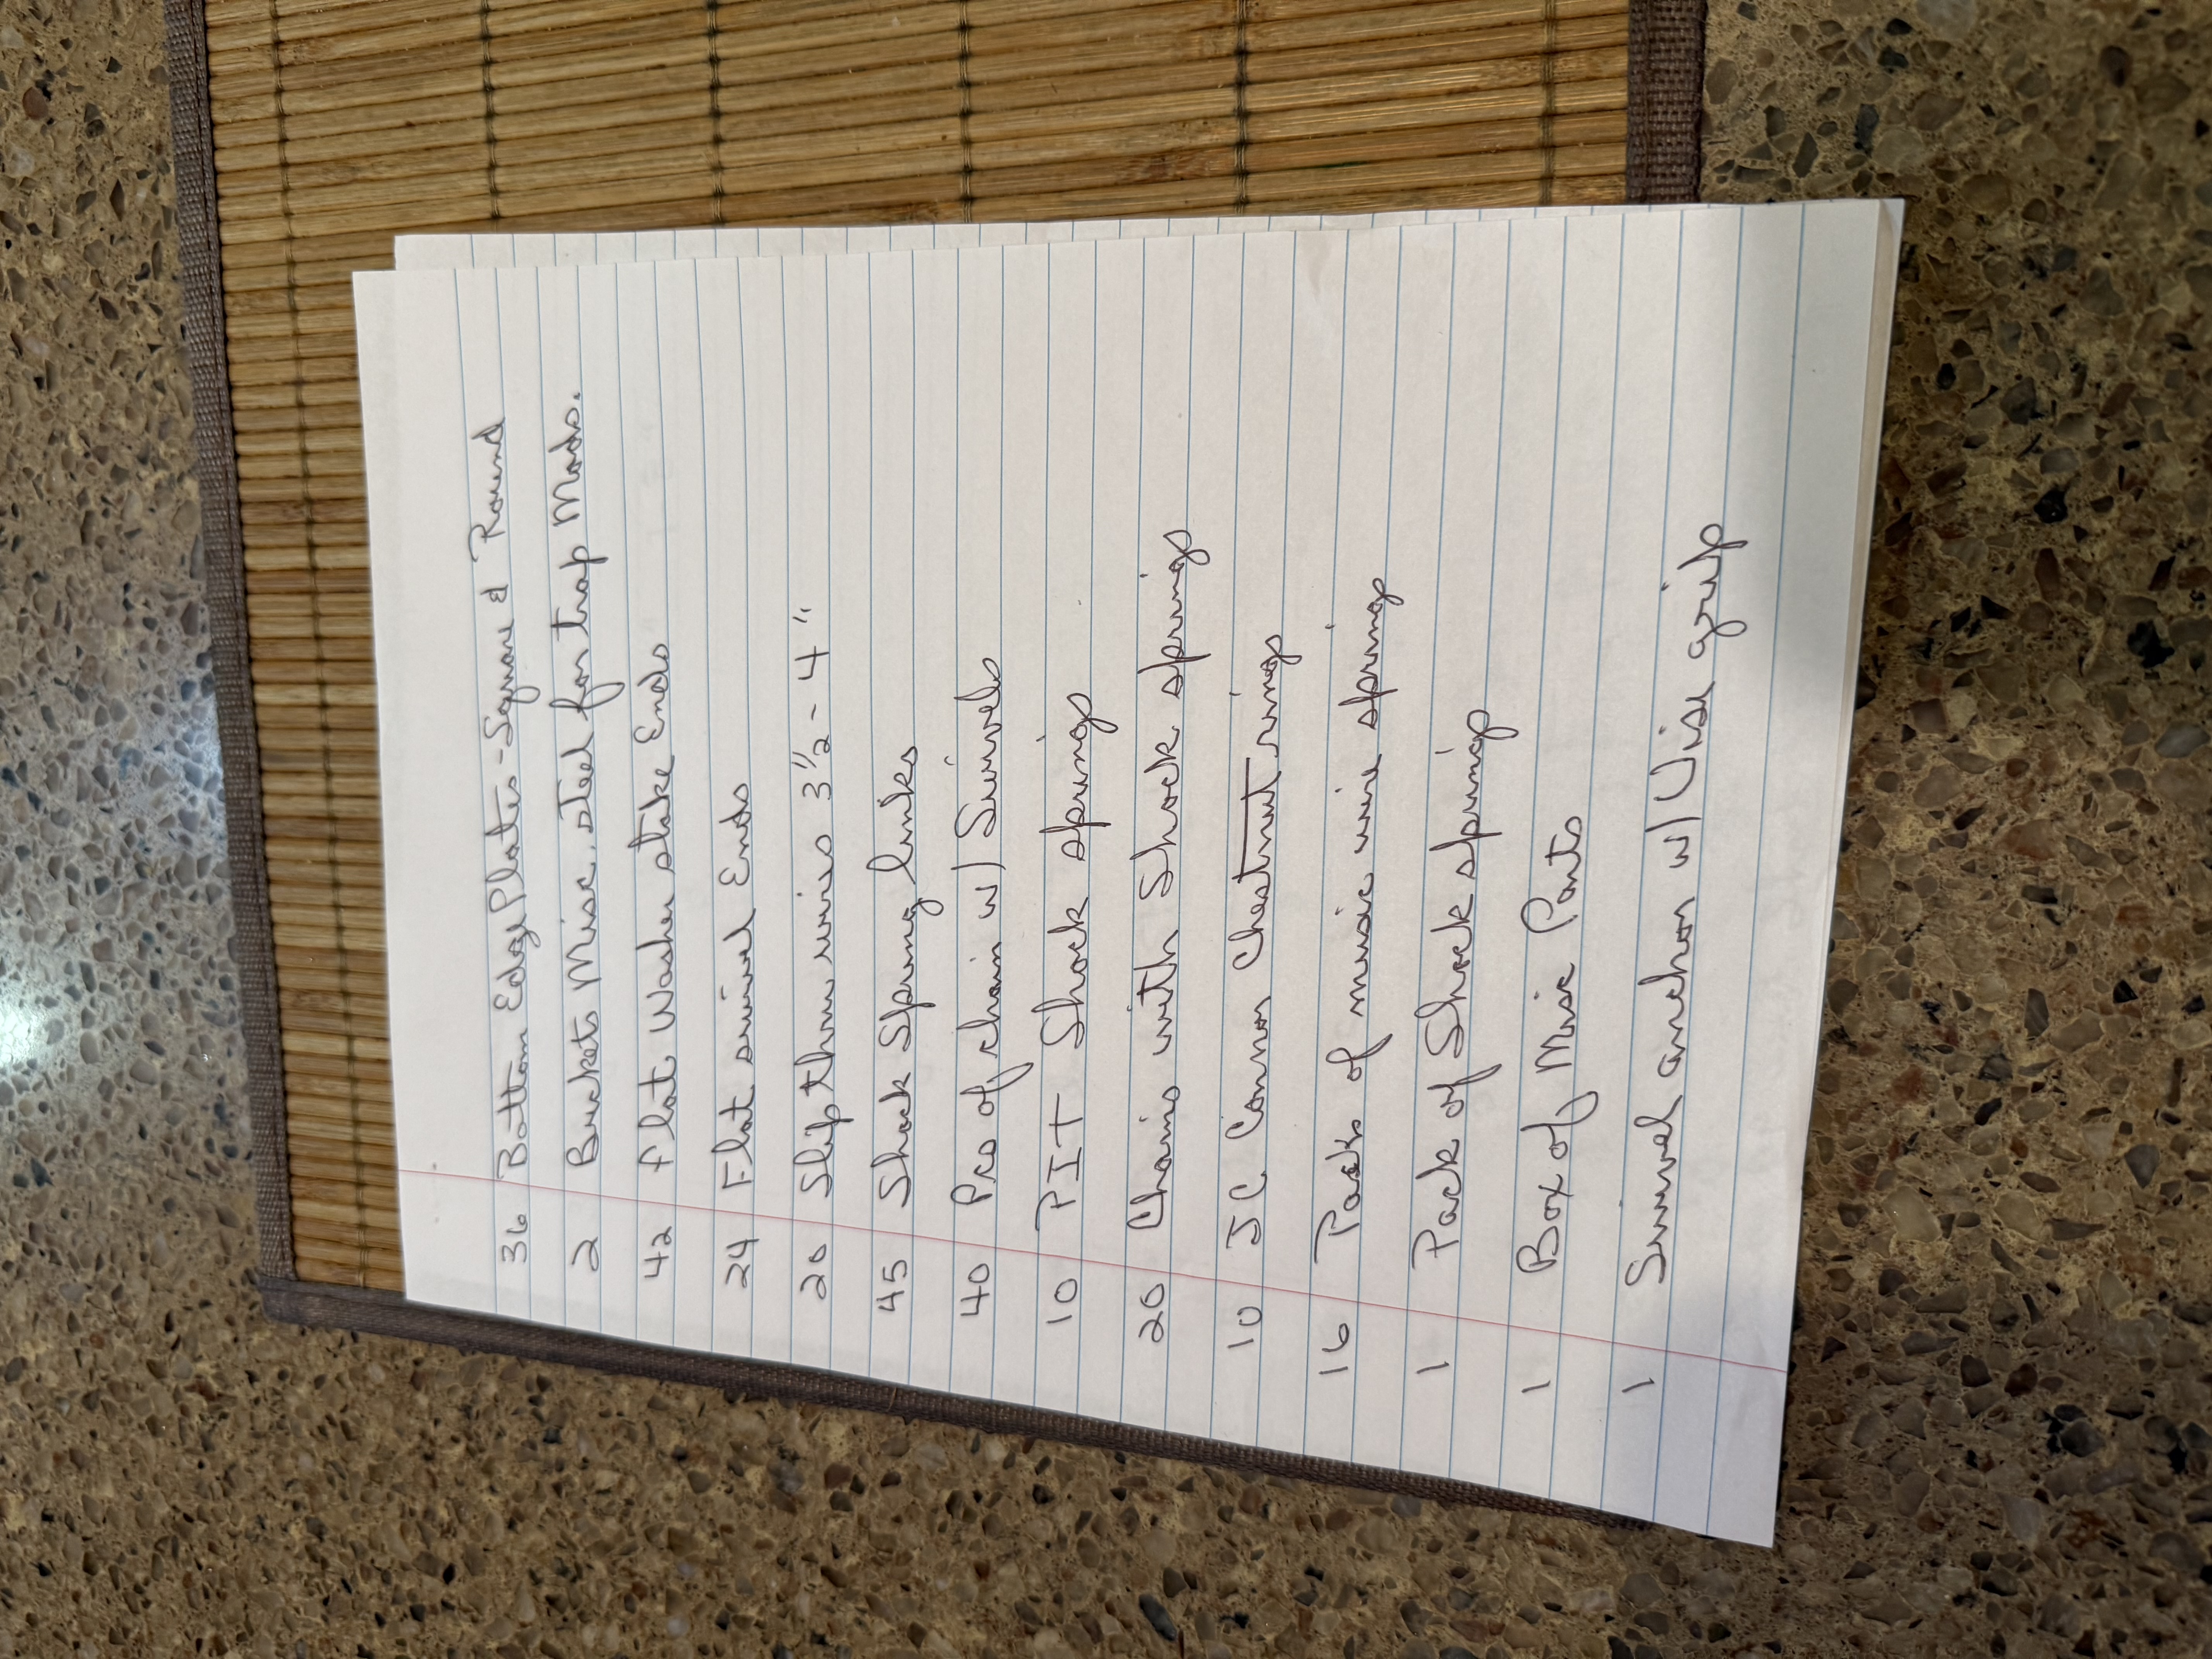 36 Bottom Edge Plates - Square & Round
2 Buckets Misc. steel for trap Mods.
42 flat Washer stake Ends
24 Flat swivel Ends
20 Slip thru wires 3 1/2 - 4"
45 Shock Spring links
40 Pcs of chain w/ Swivels
10 PIT Shock springs
20 Chains with Shock springs
10 JC Connor Chestnut rings
16 Packs of music wire springs
1 Pack of Shock springs
1 Box of Misc Parts
1 Swivel anchor w/ Vise grip